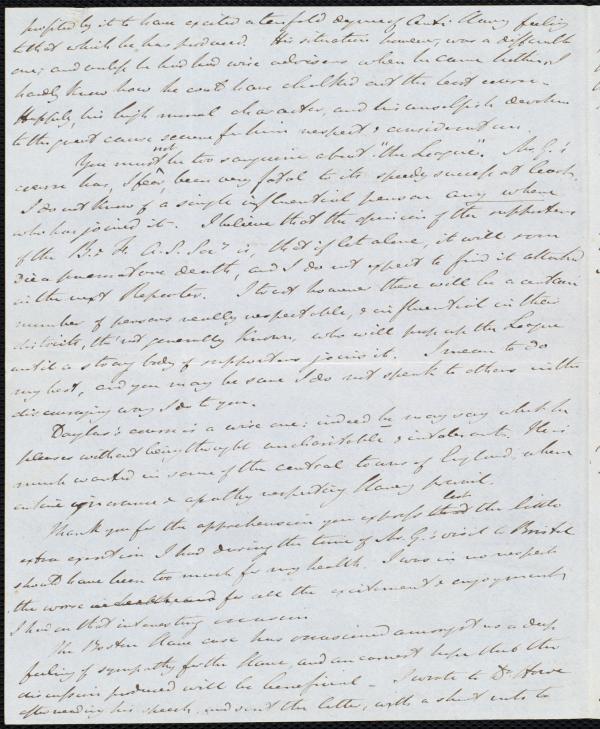 profited by it to have excited a tenfold degree of Anti-Slavery feeling
to that which he has produced. His situation however, was a difficult
one; and unless he had had wise advisers when he came hither, I
hardly know how he could have chalked out the best course.
Happily, his high moral character, and his unselfish devotion
to the great cause, secure for him respect & consideration.
You must not be too sanguine about "the League". Mr G.'s
course has, I fear, been very fatal to its speedy success at least.
I do not know of a single influential person any where
who has joined it. I believe that the opinion of the supporters
of the B. & F. A.S. Socy is, that if let alone, it will soon
die a premature death, and I do not expect to find it attacked
in the next Reporter. I trust however there will be a certain
number of persons really respectable, & influential in their
districts, tho' not generally known, who will prop up the League
until a strong body of supporters joins it. I mean to do
my best, and you may be sure I do not speak to others in the
discouraging way I do to you.
Douglas's course is a wise one; indeed he may say what he
pleases without being thought uncharitable & intolerant. He is
much wanted in some of the central towns of England, where
entire ignorance & apathy respecting Slavery prevail.
Thank you for the apprehension you express lest the little
extra exertion I had during the time of Mr G.'s visit to Bristol
should have been too much for my health. I was in no respect
the worse for all the excitement & enjoyment
I had on that interesting occasion.
The Boston Slave case has occasioned amongst us a deep
feeling of sympathy for the Slave, and an earnest hope that the
discussion produced will be beneficial - I wrote to Dr Howe
after reading his speech, and sent the letter, with a short note to